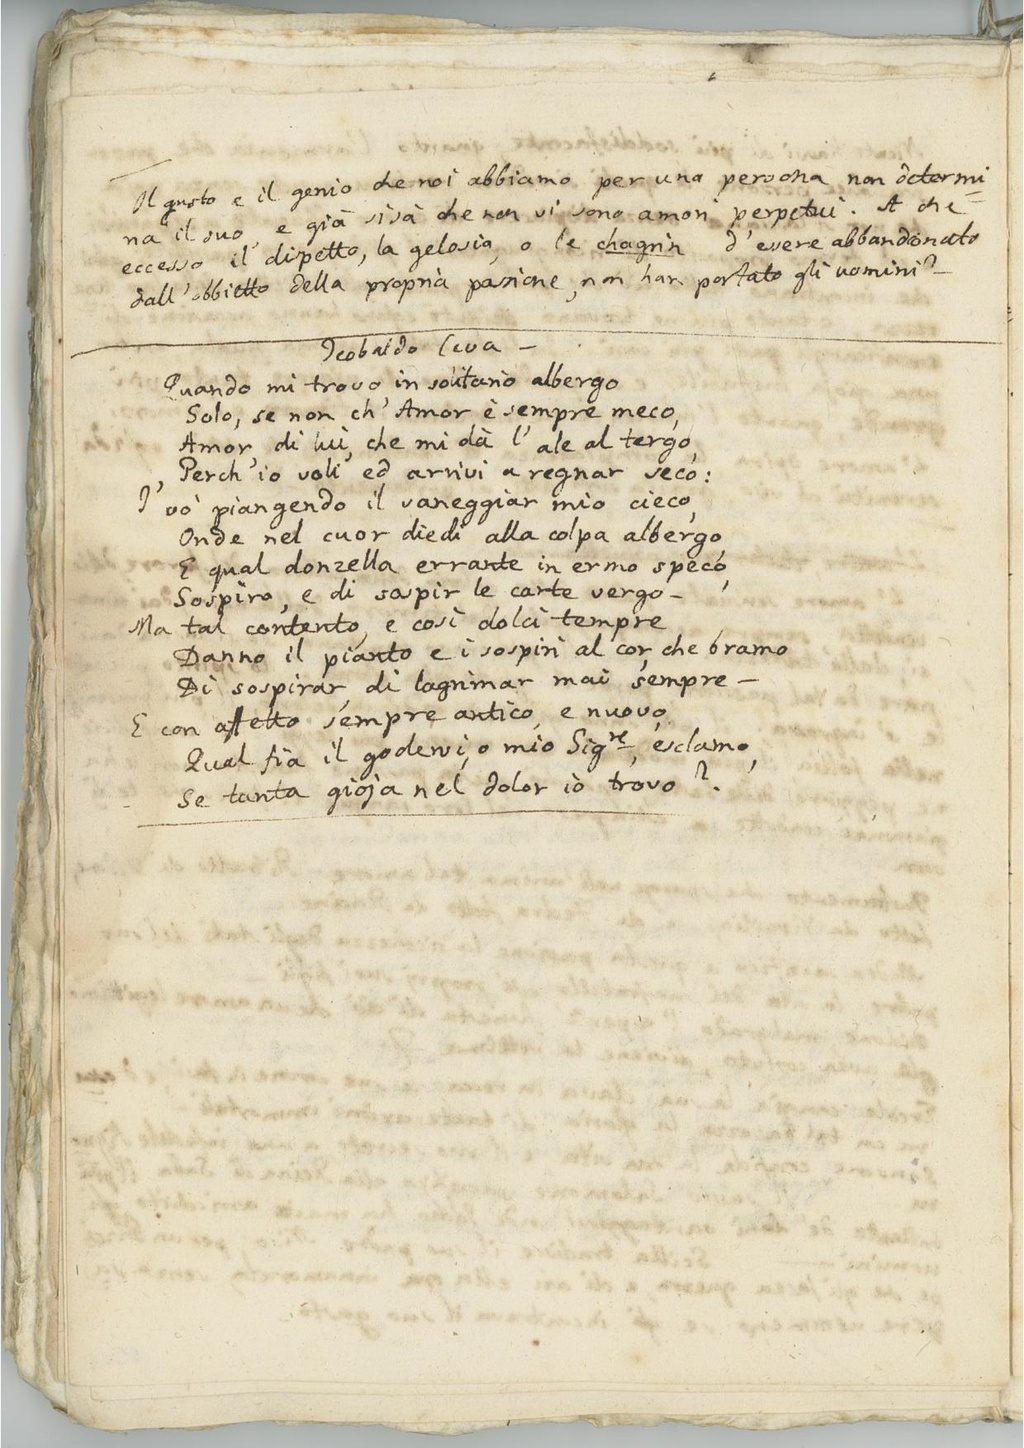 Il gusto e il genio che noi abbiamo per una persona non determi=
na il suo, e già si sà che non vi sono amori perpetui. A che
eccesso il dispetto, la gelosia, o le chagrin d'essere abbandonato
dall'obbietto della propria passione, non han portato gli uomini?
Teobaldo Ceva -
Quando mi trovo in solitario albergo
Solo, se non ch'Amor è sempre meco,
Amor, di lui, che mi dà l'ale al tergo,
Perch'io voli ed arrivi a regnar seco:
I' vò piangendo il vaneggiar mio cieco,
Onde nel cuor diedi alla colpa albergo,
E qual donzella errante in ermo speco,
Sospiro, e di sospir le carte vergo -
Ma tal contento, e così dolci tempre
Danno il pianto e i sospiri al cor, che bramo
Di sospirar di lagrimar mai sempre -
E con affetto sempre antico, e nuovo,
Qual fia il godervi, o mio Sigre, esclamo,
Se tanta gioja nel dolor iò trovo?.